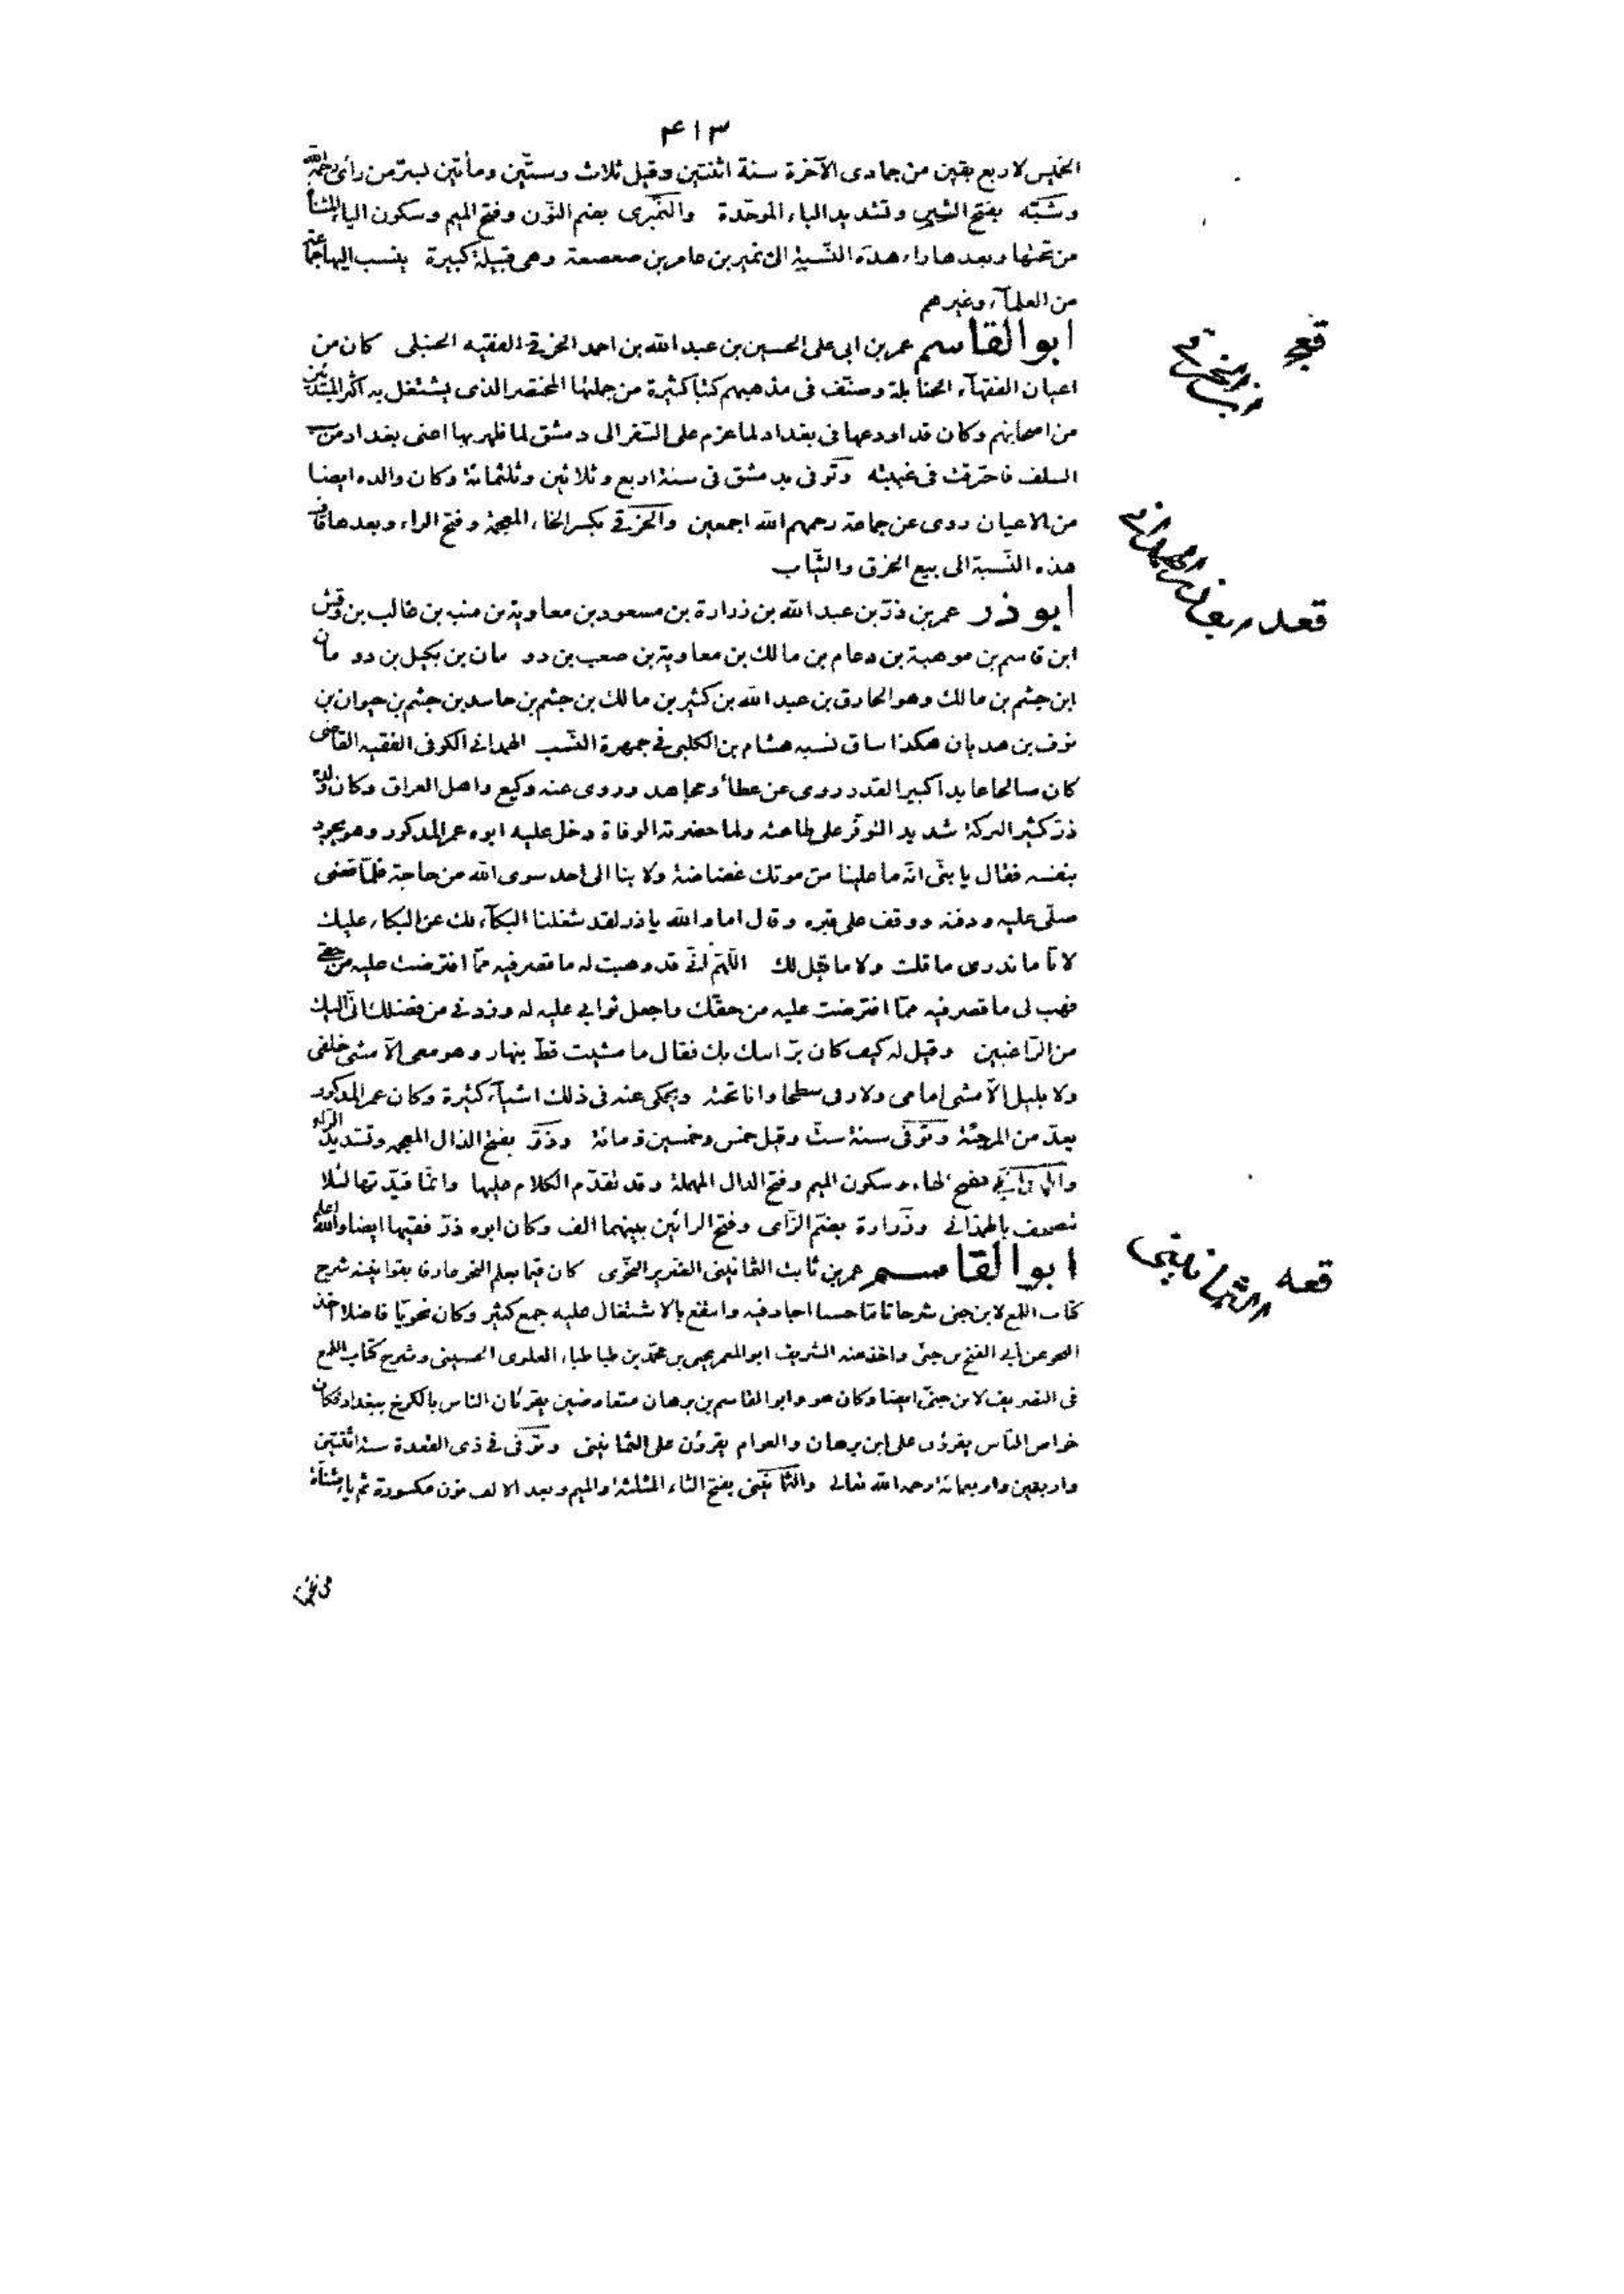 ۴۱۳
الخميس لاربع بقين من جمادى الآخرة سنة اثنتين وقيل ثلاث وستّين ومأتين لبسرّ من رأى رحمه الله
وشبّه بفتح الشين وتشديد الباء الموحّدة والنّميرى بضم النّون وفتح الميم وسكون الياء المثناة
من تحتها وبعدها راء هذه النّسبة الى نمير بن عامر بن صعصعة وهى قبيلة كبيرة ينسب اليها جماعة
من العلمآء وغيرهم
ابو القاسم عمر بن ابى على الحسين بن عبد الله بن احمد الخرقى الفقيه الحنبلى كان من
اعيان الفقهآء الحنابلة وصنّف فى مذهبهم كتبا كثيرة من جملتها المختصر الذى يشتغل به اكثر المبتدئين
من اصحابهم وكان قد اودعها فى بغداد لما عزم على السّفر الى دمشق لما ظهر بها اعنى بغداد من سب
السلف فاحترقت فى غيبته وتوفى بدمشق فى سنة اربع وثلاثين وثلثمائة وكان والده ايضا
من الاعيان روى عن جماعة رحمهم الله اجمعين والخرقى بكسر الخاء المعجمة وفتح الراء وبعدها قاف
هذه النّسبة الى بيع الخرق والثّياب
ابو ذر عمر بن ذرّ بن عبد الله بن زرارة بن مسعود بن معاوية بن منبه بن غالب بن وقش
ابن قاسم بن موهبة بن دعام بن مالك بن معاوية بن صعب بن دومان بن بكيل بن دومان
ابن جشم بن مالك وهو الخارق بن عبد الله بن كثير بن مالك بن جشم بن حاسد بن جشم بن حيوان بن
نوف بن همدان هكذا ساق نسبه هشام بن الكلبى فى جمهرة النّسب الهمدانى الكوفى الفقيه القاضى
كان صالحا عابدا كبير القدر روى عن عطأ ومجاهد وروى عنه وكيع واهل العراق وكان ولده
ذرّ كثير البركة شديد التوفّر على طاعته ولما حضرته الوفاة دخل عليه ابوه عمر المذكور وهو يجود
بنفسه فقال يا بنّى انّه ما علينا من موتك غضاضة ولا بنا الى احد سوى الله من حاجة فلمّا قضى
صلّى عليه ودفنه ووقف على قبره وقال اما والله يا ذر لقد شغلنا البكآء لك عن البكاء عليك
لانّا ما ندرى ما قلت ولا ما قيل لك اللّهمّ انّى قد وهبت له ما قصر فيه ممّا افترضت عليه من حقى
فهب لى ما قصر فيه ممّا افترضت عليه من حقّك واجعل ثوابى عليه له وزدنى من فضلك انّى اليك
من الرّاغبين وقيل له كيف كان برّ ابنك بك فقال ما مشيت قطّ بنهار وهو معى الّا مشى خلفى
ولا بليل الّا مشى امامى ولا رقى سطحا وانا تحته ويحكى عنه فى ذلك اشيآء كثيرة وكان عمر المذكور
يعدّ من المرجئة وتوفّى سنة ستّ وقيل خمس وخمسين ومائة وذرّ بفتح الذال المعجمه وتشديد الراء
والهمدانى بفتح الهاء وسكون الميم وفتح الدال المهملة وقد تقدّم الكلام عليها وانّما قيّدتها لئلا
تصحف بالهمذانى وزرارة بضمّ الزّاى وفتح الرائين بينهما الف وكان ابوه ذرّ فقيها ايضا والله اعلم
ابو القاسم عمر بن ثابت الثمانينى الضرير النحّوى كان قيما بعلم النحو عارفا بقوانينه شرح
كتاب اللمع لابن جنى شرحا تامّا حسنا اجاد فيه وانتفع بالاشتغال عليه جمع كثير وكان نحويّا فاضلا اخذ
النحو عن أبى الفتح بن جنّى واخذ عنه الشريف ابو المعمر يحيى بن محمّد بن طباطباء العلوى الحسينى وشرح كتاب اللمع
فى التصريف لابن جنّى ايضا وكان هو وابو القاسم بن برهان متعارضين يقرئان الناس بالكرخ ببغداد فكان
خواص النّاس يقرؤن على ابن برهان والعوام يقرؤن على الثمانينى وتوّفى فى ذى القعدة سنة اثنتين
واربعين واربعمائة رحمه الله تعالى والثّمانينى بفتح الثاء المثلثة والميم وبعد الالف نون مكسورة ثم ياء مثنّاة
من تحتها